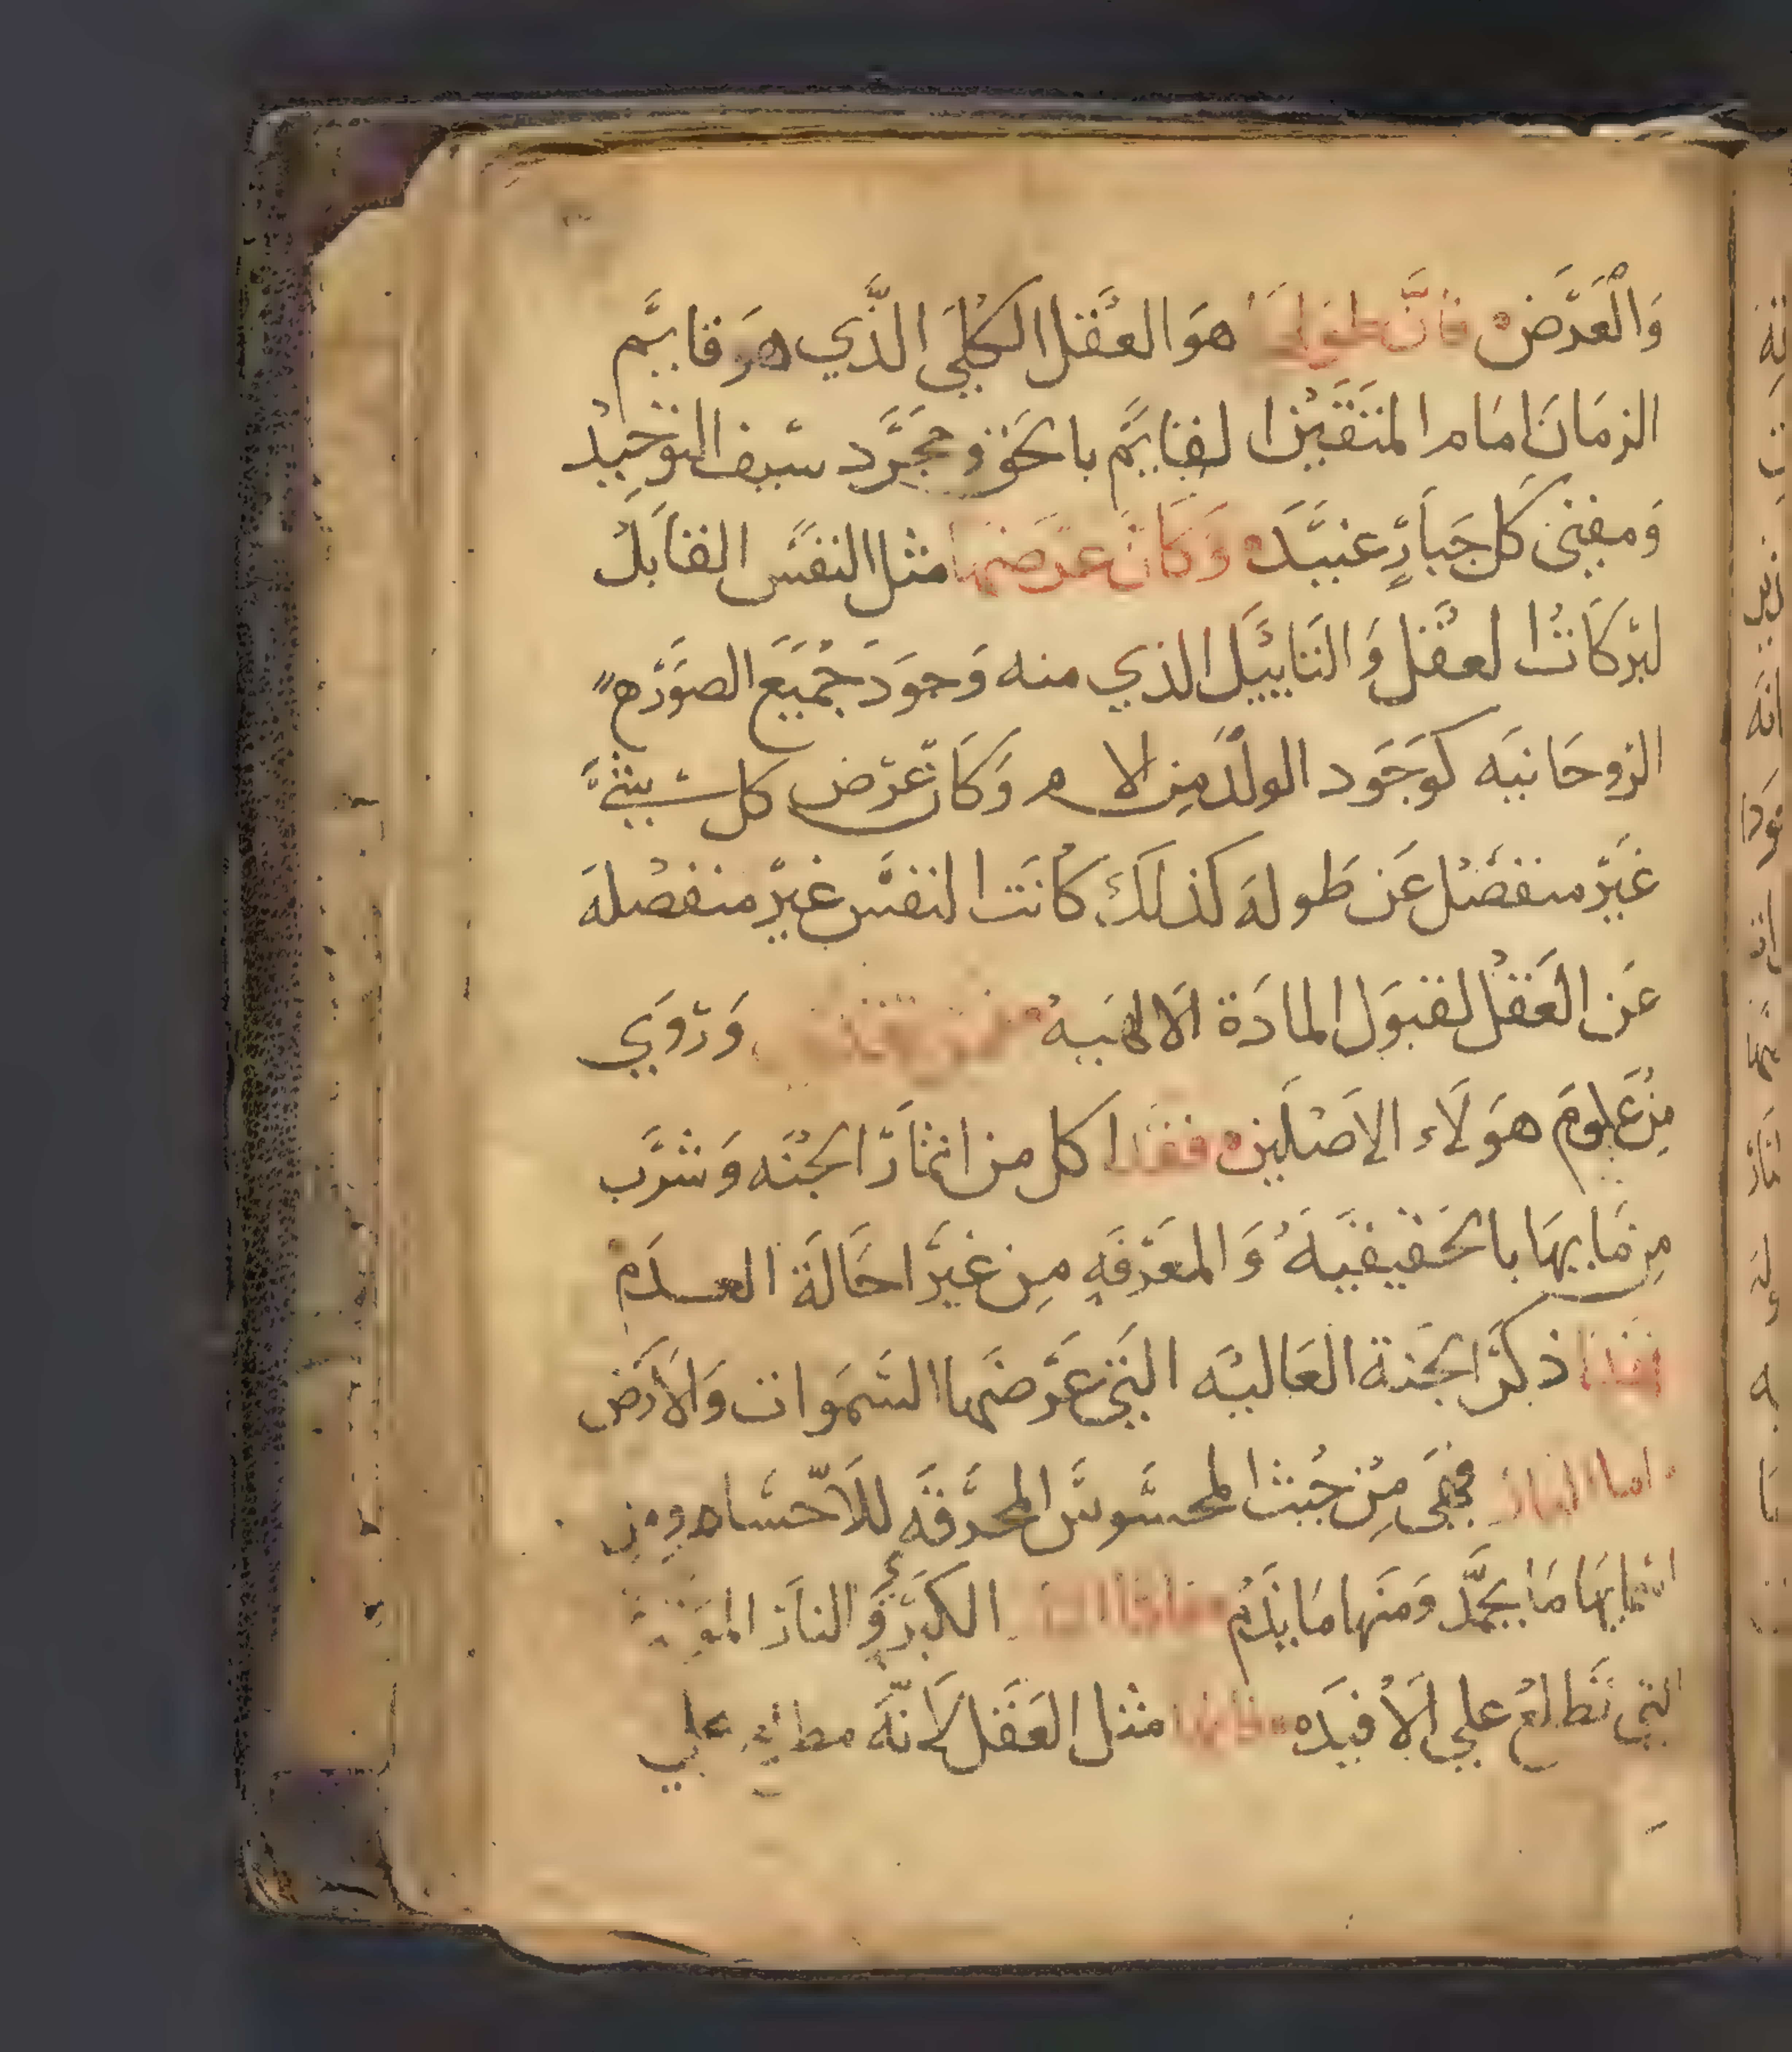 وَالْعَرَض فانَّ طولها هوَ العَقل الكلي الذَّي هوَ قايم
الزمان امام المتقين القايم بالحق ومجرَّد سَيف التوحيد
وَمفني كل جَبارٍ عنيَد وَكانَ عرَضها مثل النفس القابل
لبركات العقل وَالتاييَّل الذي منه وَجوَد جميَع الصوَر
الروحَانيه كوَجوَد الولد مِن الام وَكانَ عرض كل شيئ
غيَر منفصل عَن طوله كذلكَ كانت النفس غيَر منفصله
عَن العَقل لقبوَل المادَة الالهيه وَروَي
مِن علوم هوَلَاء الاصلين فقد اكل من اثمار الجنه وَشرَب
مِن مَايها بالحقيقيَه وَالمعَرفَه مِن غيَر احَالَة العدَم
فهذا ذكر الجنة العَاليَه التَي عَرضهَا السَموَات وَالارض
واما النار فهَي مِن حيث المحسَوسَ المحرَقَه للاَحسَام وَمن
اسمايهَا مَا يحمَّد وَمنَها مَا يذَم الكبرَي وَالنار
التي تَطلع علي الاَفيَده فانها مثل العَقل لاَنَّهَ مطلع علي